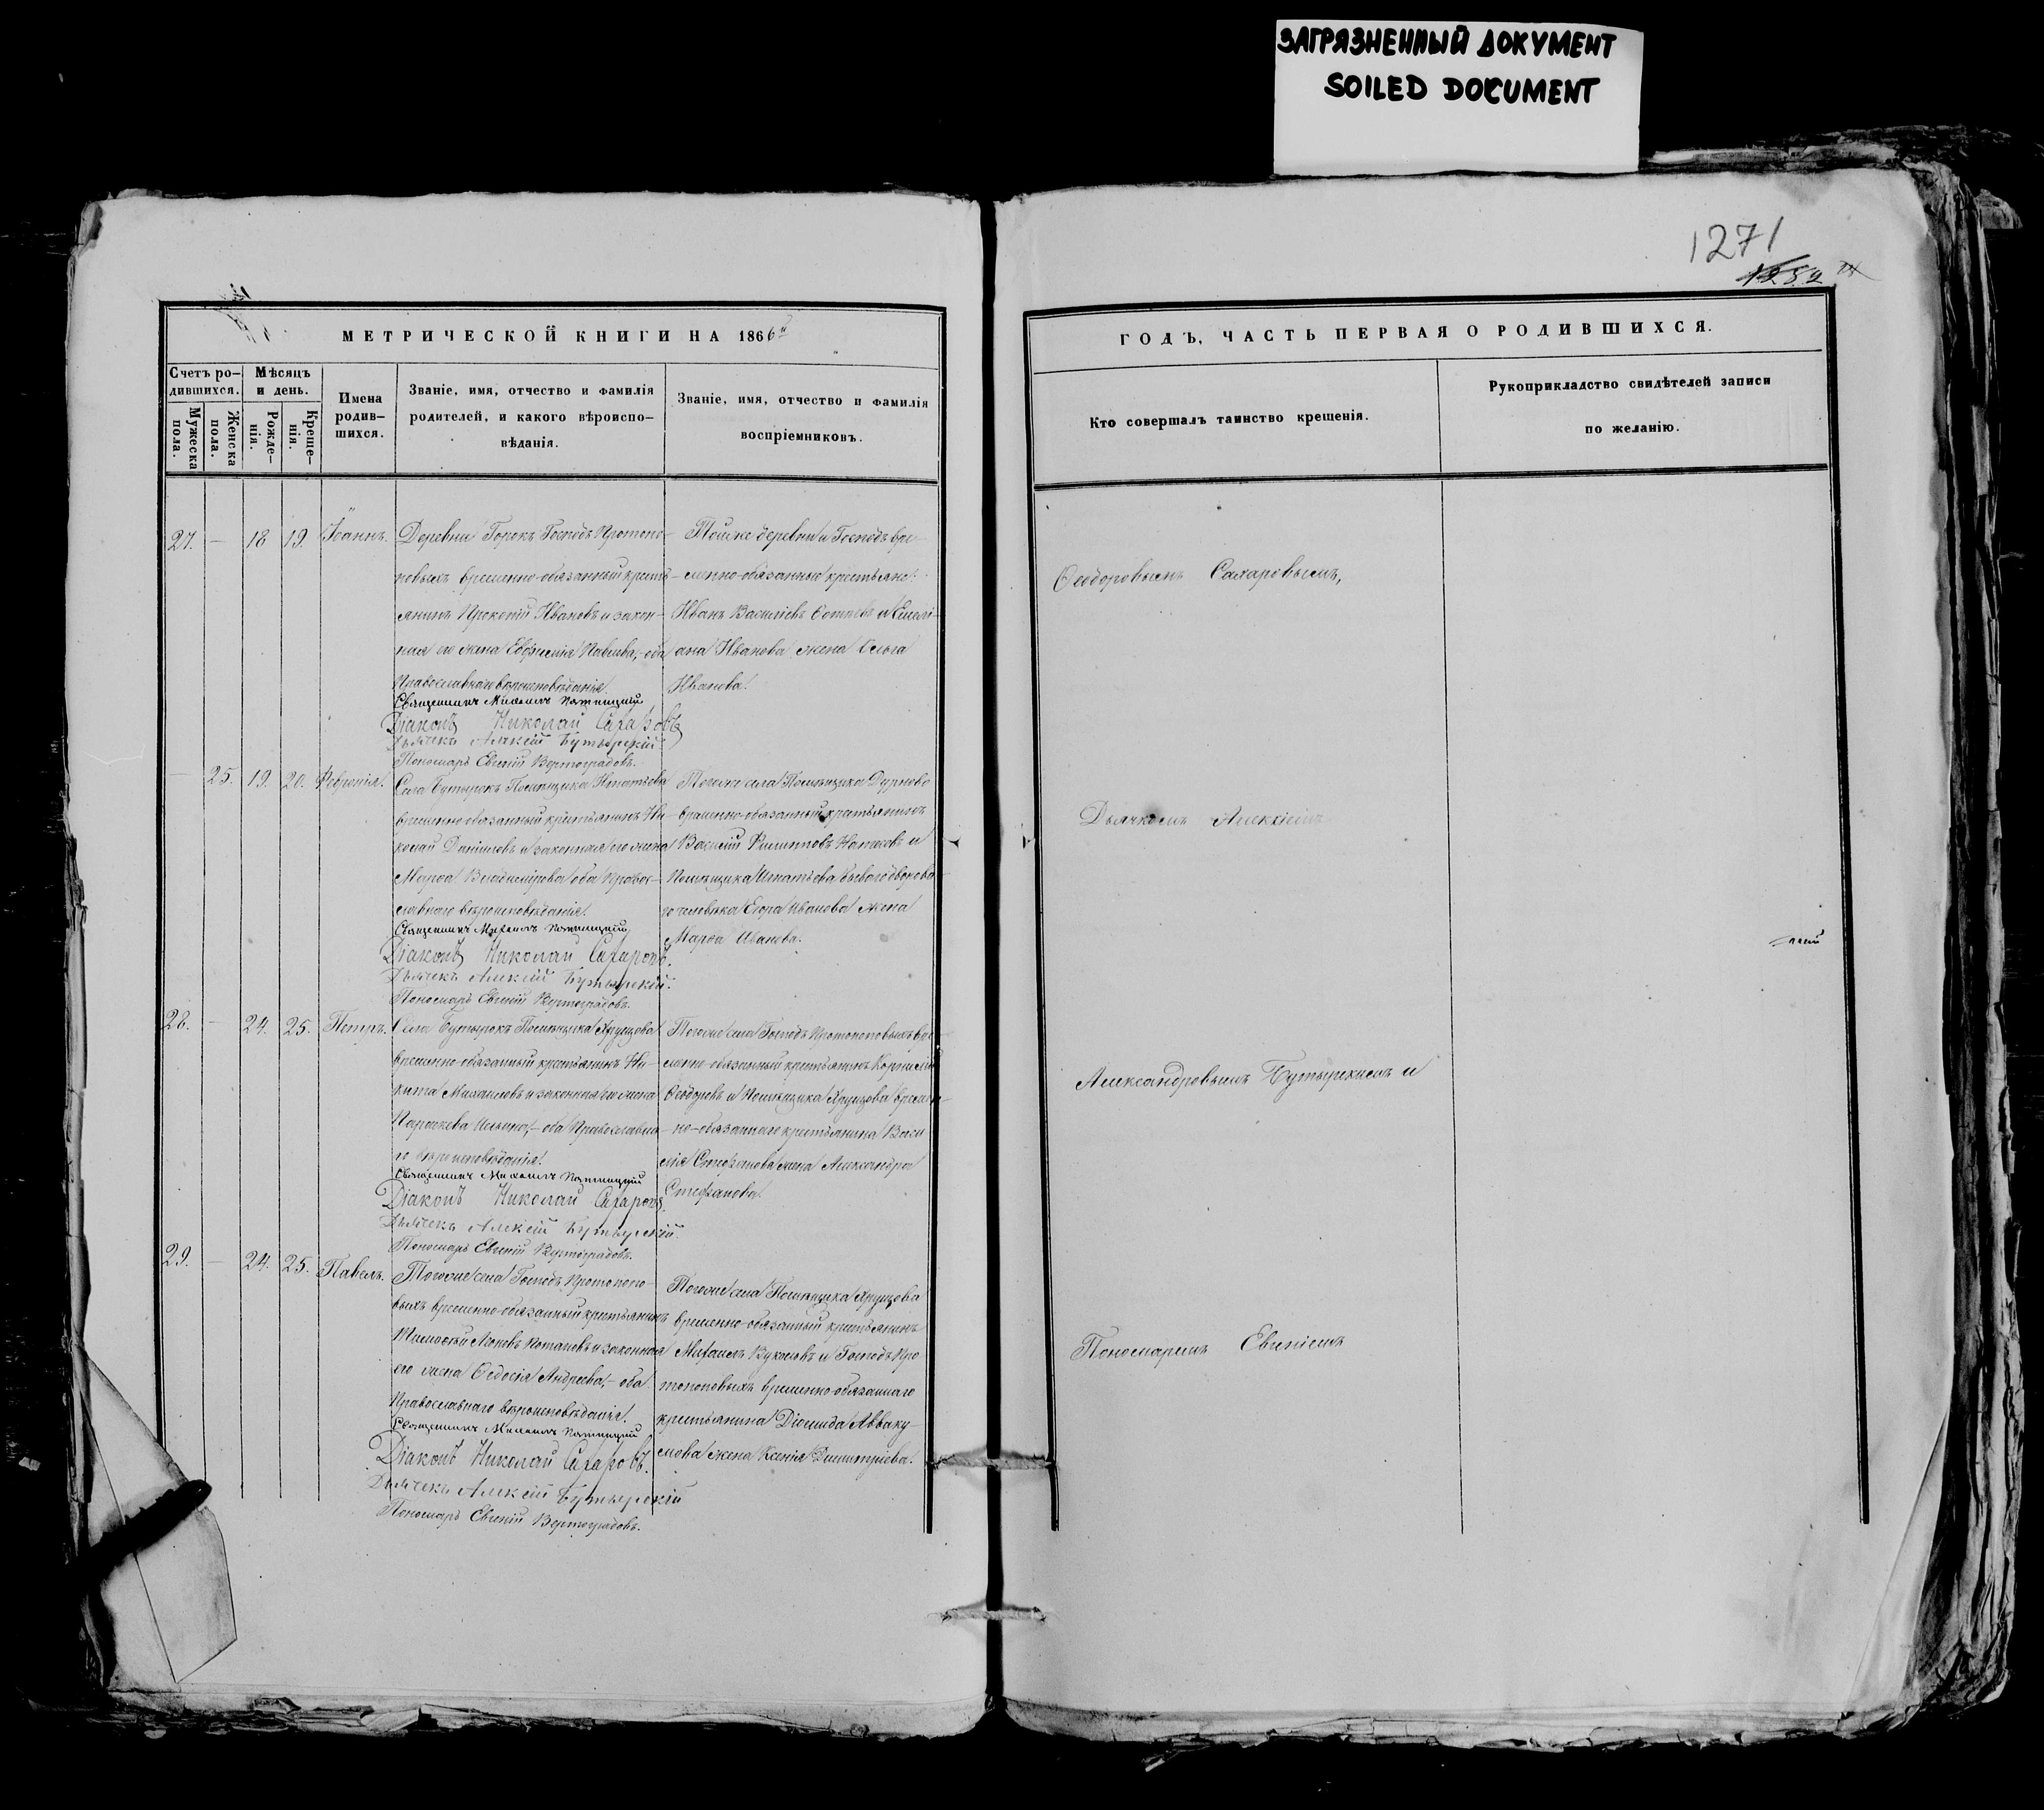 ЗАГРЯЗНЕННЫЙ ДОКУМЕНТ
SOILED DOCUMENT
1271
1252
МЕТРИЧЕСКОЙ КНИГИ НА 1866й
Счетъ ро-
дившихся.
Мѣсяцъ
и день.
Мужеска
пола.
Женска
пола.
Рожде-
нія.
Креще-
нія.
Имена
родив-
шихся.
Званіе, имя, отчество и фамилія
родителей, и какого вѣроиспо-
вѣданія.
Званіе, имя, отчество и фамилія
воспріемниковъ.
27. — 18 19. Іоаннъ.
Деревни Горокъ Господъ Протопо-
повыхъ временно-обязанный кресть-
янинъ Прокопій Ивановъ и закон-
ная его жена Евфимія Павлова, оба
Православнаго вѣроисповѣданія.
Священникъ Михаилъ Пятницкій
Діаконъ Николай Сахаровъ
Дьячекъ Алексій Бутырскій
Пономарь Евгеній Вертоградовъ.
Тойже деревни и Господъ вре-
менно-обязанные крестьяне:
Иванъ Васильевъ и
Иванова жена Ольга
Иванова.
— 25. 19. 20. Феѵронія.
Села Бутырокъ Помѣщика Игнатьева
временно-обязанный крестьянинъ Ни-
колай Даніиловъ и законная его жена
Марѳа Владимірова оба Правос-
лавнаго вѣроисповѣданія.
Священникъ Михаилъ Пятницкій
Діаконъ Николай Сахаровъ.
Дьячекъ Алексій Бутырскій.
Пономарь Евгеній Вертоградовъ.
Тогоже села Помѣщика Дурново
временно-обязанный крестьянинъ
Василій Филипповъ и
Помѣщика Игнатьева бывого дворова-
го человѣка Егора Иванова жена
Марѳа Иванова.
28. — 24. 25. Петръ.
Села Бутырокъ Помѣщика Хрущова
временно-обязанный крестьянинъ Ни-
кита Михаиловъ и законная его жена
Параскева Ильина, — оба Православна-
го вѣроисповѣданія.
Священникъ Михаилъ Пятницкій
Діаконъ Николай Сахаровъ
Дьячекъ Алексій Бутырскій.
Пономарь Евгеній Вертоградовъ.
Тогоже села Господъ Протопоповыхъ вре-
менно-обязанный крестьянинъ Корнилій
Ѳеодоровъ и Помѣщика Хрущова времен-
но-обязаннаго крестьянина Васи-
лія Стефанова жена Александра
Стефанова.
29. — 24. 25. Павелъ.
Тогоже села Господъ Протопопо-
выхъ временно-обязанный крестьянинъ
Тимоѳей Потаповъ и законная
его жена Ѳедосія Андреева, — оба
Православнаго вѣроисповѣданія.
Священникъ Михаилъ Пятницкій
Діаконъ Николай Сахаровъ.
Дьячекъ Алексій Бутырскій
Пономарь Евгеній Вертоградовъ.
Тогоже села Помѣщика Хрущова
временно-обязанный крестьянинъ
Михаилъ Вуколовъ и Господъ Про-
топоповыхъ временно-обязаннаго
крестьянина Діомида Авваку-
мова жена Ксенія Димитріева.
ГОДЪ, ЧАСТЬ ПЕРВАЯ О РОДИВШИХСЯ.
Кто совершалъ таинство крещенія.
Рукоприкладство свидѣтелей записи
по желанію.
Ѳеодоровымъ Сахаровымъ,
Дьячкомъ Алексіемъ
Александровымъ Бутырскимъ и
Пономаремъ Евгеніемъ